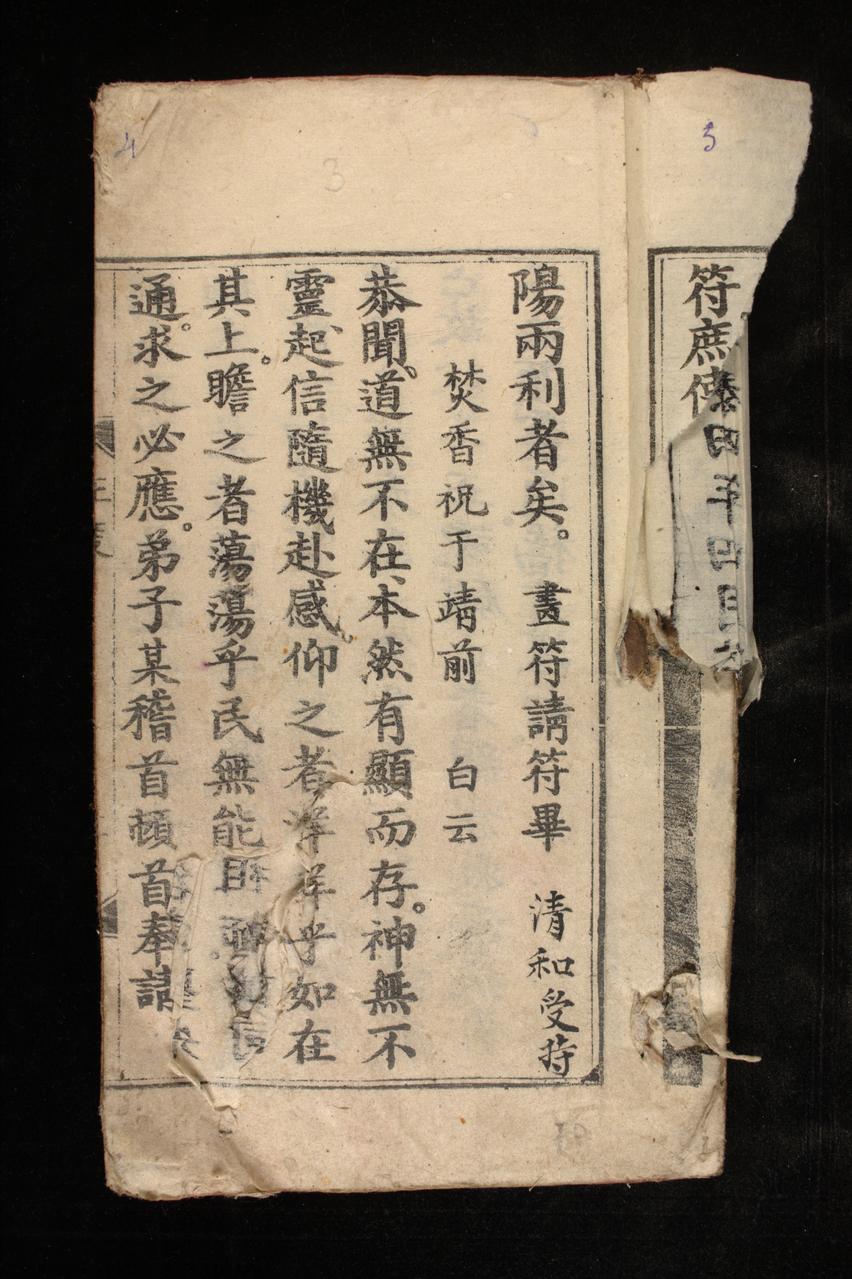 5
符庶傳
陽兩利者矣。畫符請符畢 清和受持
焚香祝于靖前 白云
恭聞。道無不在、本然有顯而存。神無不
靈、起信隨機赴感。仰之者洋洋乎如在
其上。瞻之者蕩蕩乎民無能
通。求之必應。弟子某稽首頓首奉請
4
3